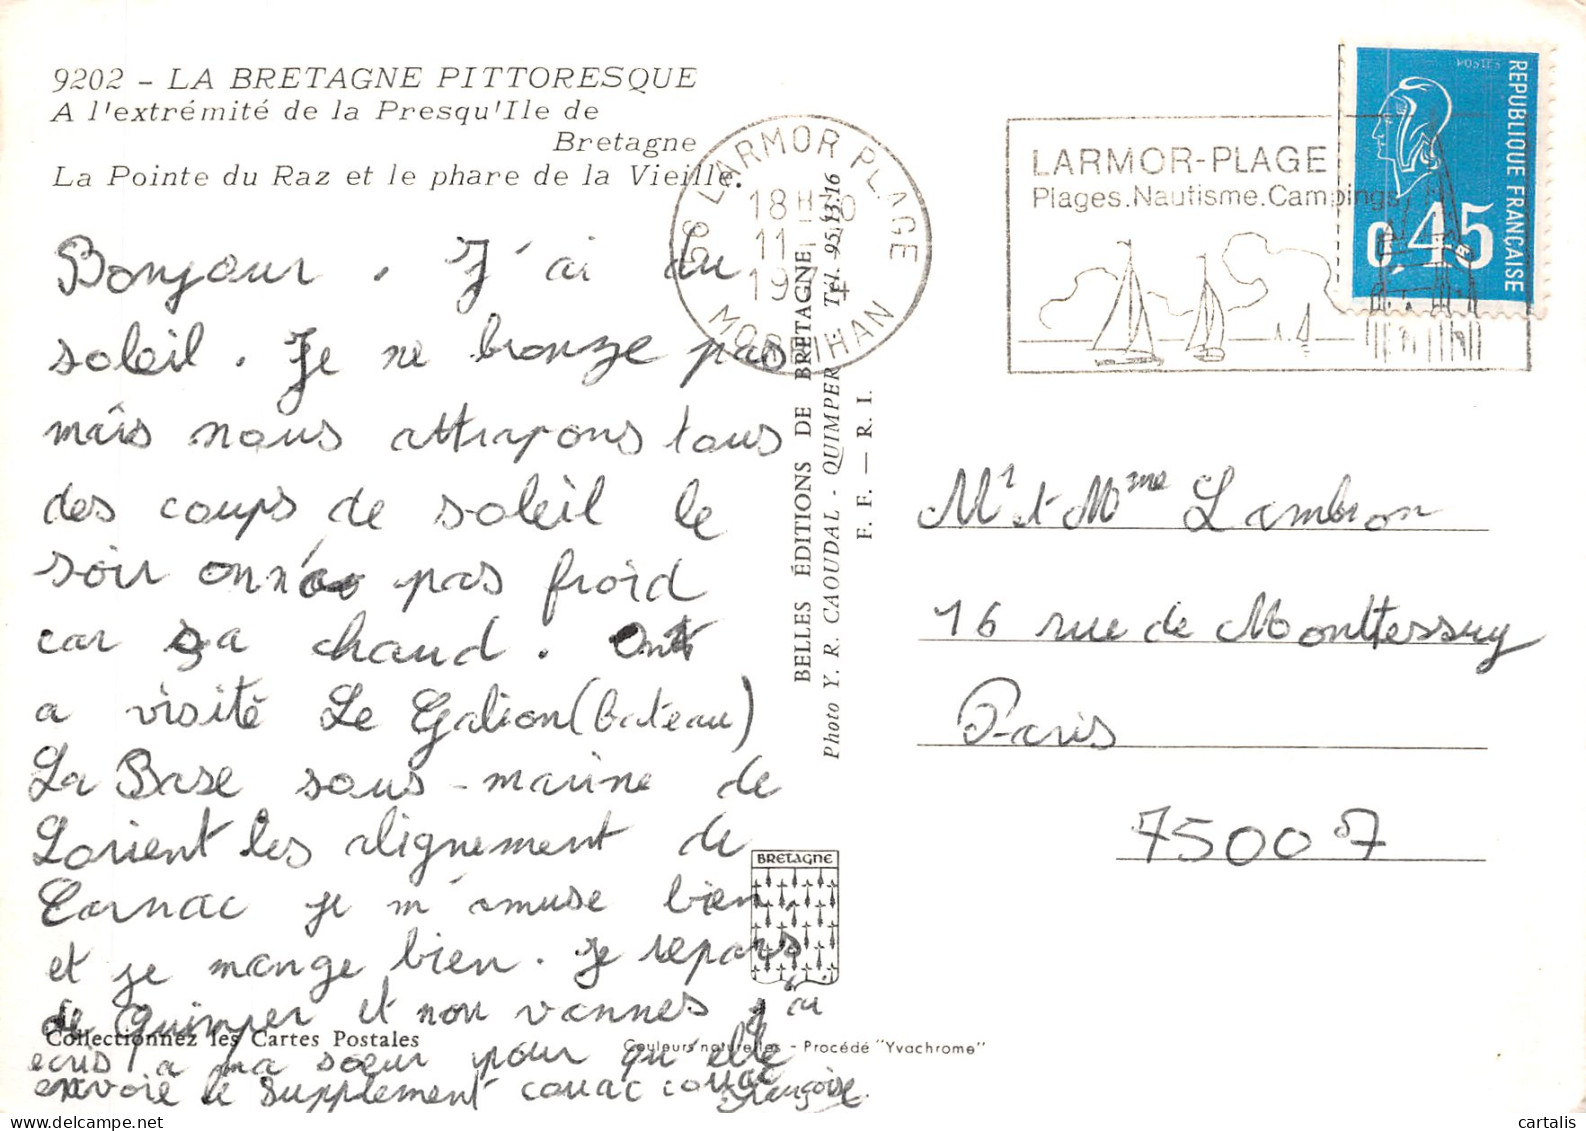 9202 - LA BRETAGNE PITTORESQUE
A l'extrémité de la Presqu'Ile de
Bretagne
La Pointe du Raz et le phare de la Vieille.
Bonjour. J'ai du
soleil. Je ne bronze pas
mais nous attrapons tous
des coups de soleil le
soir on n'a pas froid
car sa chaud. On
a visité Le Galion (bateau)
La Base sous-marine de
Lorient les alignement de
Carnac je m'amuse bien
et je mange bien. Je repars
de Quimper et non vannes j'ai
ecris a ma soeur pour qu'elle
envoie le Supplement couac couac
Françoise.
Collectionnez les Cartes Postales
Couleurs naturelles - Procédé "Yvachrome"
BRETAGNE
BELLES ÉDITIONS DE BRETAGNE
Photo Y. R. CAOUDAL - QUIMPER Tél. 95.13.16
F. F. — R. I.
LARMOR PLAGE
18 H
11
MORBIHAN
LARMOR-PLAGE
Plages.Nautisme.Campings
POSTES
REPUBLIQUE FRANÇAISE
0,45
Mr et Mme Lambron
16 rue de Monttessuy
Paris
75007
cartalis
www.delcampe.net